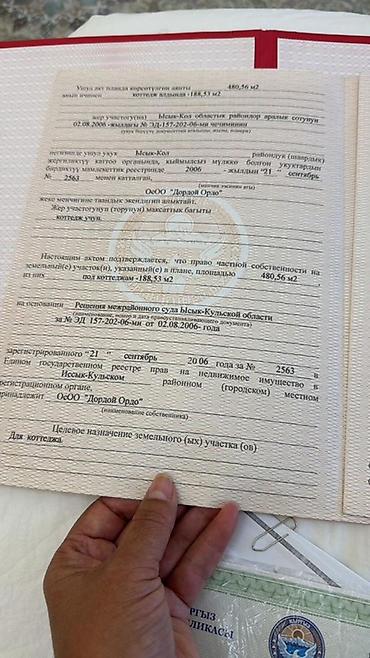 Ушул акт планда көрсөтүлгөн аянты 480,56 м2
анын ичинен коттедж алдында -188,53 м2
жер участогун(на) Ысык-Кол областык райондор аралык сотунун
02.08.2006 -жылдагы № ЭД-157-202-06-ми чечиминин
негизинде ушул укук Ысык-Кол райондук (шаардык)
жергиликтүү каттоо органында, кыймылсыз мүлккө болгон укуктардын
бирдиктүү мамлекеттик реестринде 2006 -жылдын "21" сентябрь
№ 2563 менен катталган,
ОсОО "Дордой Ордо"
(менчик ээсинин аты)
жеке менчигине таандык экендигин аныктайт.
Жер участогунун (торунун) максаттык багыты
коттедж учун.
Настоящим актом подтверждается, что право частной собственности на
земельный(е) участок(и), указанный(е) в плане, площадью 480,56 м2 ,
из них под коттеджам -188,53 м2
на основании Решения межрайонного суда Ысык-Кульской области
(наименование, номер и дата правоустанавливающего документа)
за № ЭД 157-202-06-ми от 02.08.2006- года
зарегистрированного "21" сентябрь 2006 года за № 2563 в
Едином государственном реестре прав на недвижимое имущество в
Иссык-Кульском районном (городском) местном
регистрационном органе,
принадлежит ОсОО "Дордой Ордо"
(наименование собственника)
Целевое назначение земельного (ых) участка (ов)
Для коттеджа
РГЫЗ
ЛИКАСЫ
КЫРГЫЗ